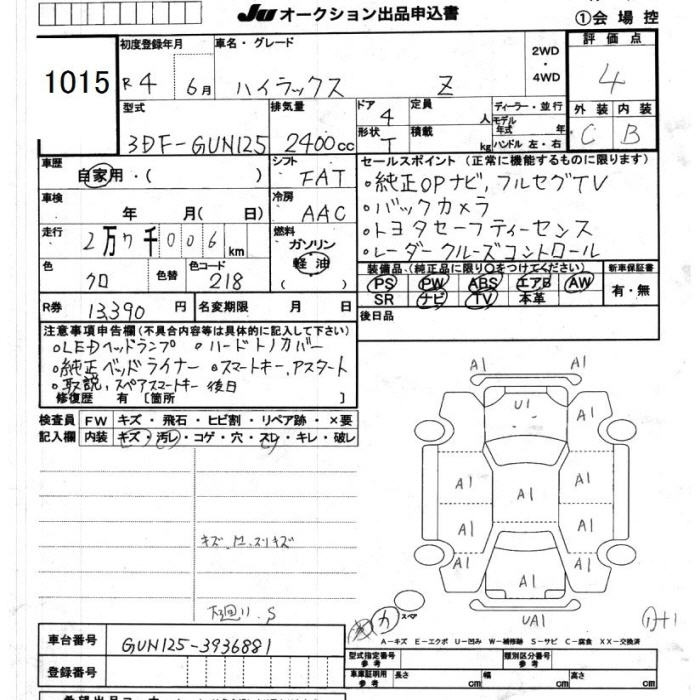 JU オークション出品申込書
①会場控
1015
初度登録年月
R4 6月
車名・グレード
ハイラックス Z
2WD
・
4WD
評価点
4
型式
3DF-GUN125
排気量
2400cc
ドア
4
形状
T
定員 人
積載 kg
ディーラー・並行
モデル年式 年
ハンドル 左・右
外装 内装
C B
車歴
自家用・( )
シフト
FAT
車検 年 月( 日)
冷房
AAC
走行
2万7千006km
燃料
ガソリン
軽油
( )
色
クロ
色替
色コード
218
R券 13,390円
名変期限 月 日
セールスポイント(正常に機能するものに限ります)
・純正OPナビ,フルセグTV
・バックカメラ
・トヨタセーフティーセンス
・レーダークルーズコントロール
装備品(純正品に限り○をつけてください)
PS PW ABS エアB AW
SR ナビ TV 本革
新車保証書
有・無
後日品
注意事項申告欄(不具合内容等は具体的に記入して下さい)
・LEDヘッドランプ ・ハードトノカバー
・純正ベッドライナー ・スマートキー,Aスタート
・取説,スペアスマートキー 後日
修復歴 有 [箇所 ]
検査員記入欄
FW キズ・飛石・ヒビ割・リペア跡・×要
内装 キズ・汚レ・コゲ・穴・スレ・キレ・破レ
キズ、凹、スリキズ
下廻り.S
A1 A1
U1
A1 A1
A1 A1 A1
A1 A1
A1 A1 A1
UA1
カ スペア
A-キズ E-エクボ U-凹み W-補修跡 S-サビ C-腐食 XX-交換済
車台番号 GUN125-3936881
登録番号
型式指定番号 参考
類別区分番号 参考
車庫証明用 参考
長さ cm 幅 cm 高さ cm